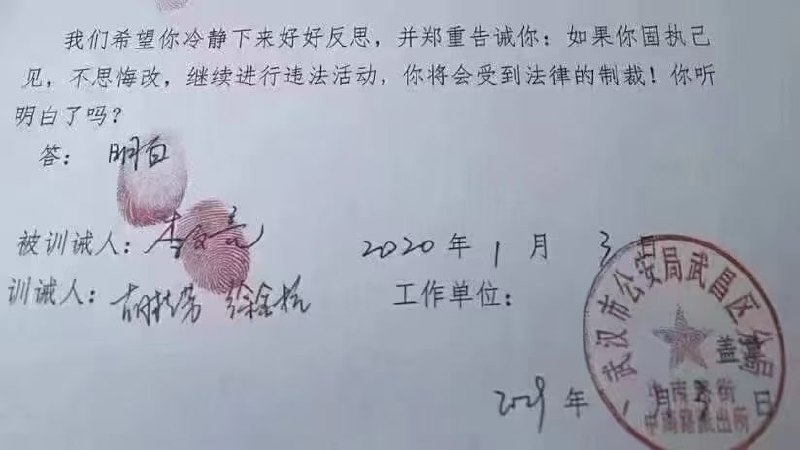 我们希望你冷静下来好好反思，并郑重告诫你：如果你固执己
见，不思悔改，继续进行违法活动，你将会受到法律的制裁！你听
明白了吗？
答：明白
被训诫人：李文亮 2020年1月3日
训诫人： 工作单位：
武汉市公安局武昌区分局
盖章
中南路街
中南路派出所
年 月 日